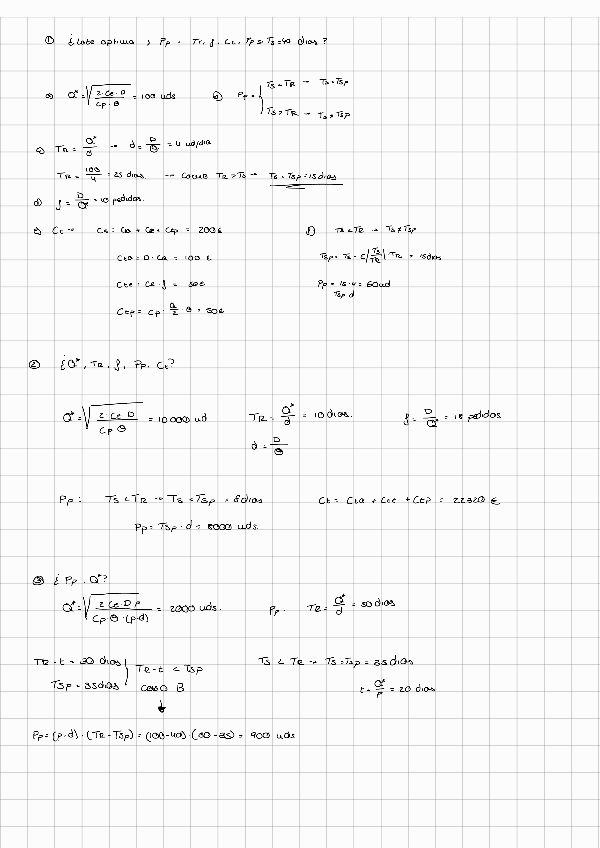 ① ¿Lote optimo , Pp , Tr, f, Ct, Tp si Ts=40 dias?
a) Q* = √(2·Ce·D / Cp·θ) = 100 uds
b) Pp = { Ts<TR → Ts=Tsp
Ts>TR → Ts≠Tsp
c) TR = Q*/d → d = D/θ = 4 ud/dia
TR = 100/4 = 25 dias. → como TR>Ts → Ts=Tsp=15dias
d) f = D/Q* = 10 pedidos.
e) Ct → Ct = Cta + Cte + Ctp = 200€
Cta = D·Ca = 100 €
Cte = Ce·f = 50€
Ctp = Cp · Q/2 · θ = 50€
f) Ts<TR → Ts≠Tsp
Tsp = Ts - E|Ts/TR| TR = 15dias
Pp = 15·4 = 60ud
Tsp·d
② ¿Q*, TR, f, Pp, Ct?
Q* = √(2·Ce·D / Cp·θ) = 10000 ud
TR = Q*/d = 10 dias.
d = D/θ
f = D/Q* = 18 pedidos
Pp: Ts<TR → Ts=Tsp = 8dias
Pp = Tsp·d = 8000 uds.
Ct = Cta + Cte + Ctp = 22320 €
③ ¿Pp, Q*?
Q* = √(2·Ce·D·p / Cp·θ·(p-d)) = 2000 uds.
Pp. TR = Q*/d = 50 dias
TR-t = 30 dias
Tsp = 35dias
TR-t < Tsp
caso B
↓
Ts < TR → Ts=Tsp = 35dias
t = Q*/p = 20 dias
Pp = (p-d)·(TR-Tsp) = (100-40)·(50-35) = 900 uds